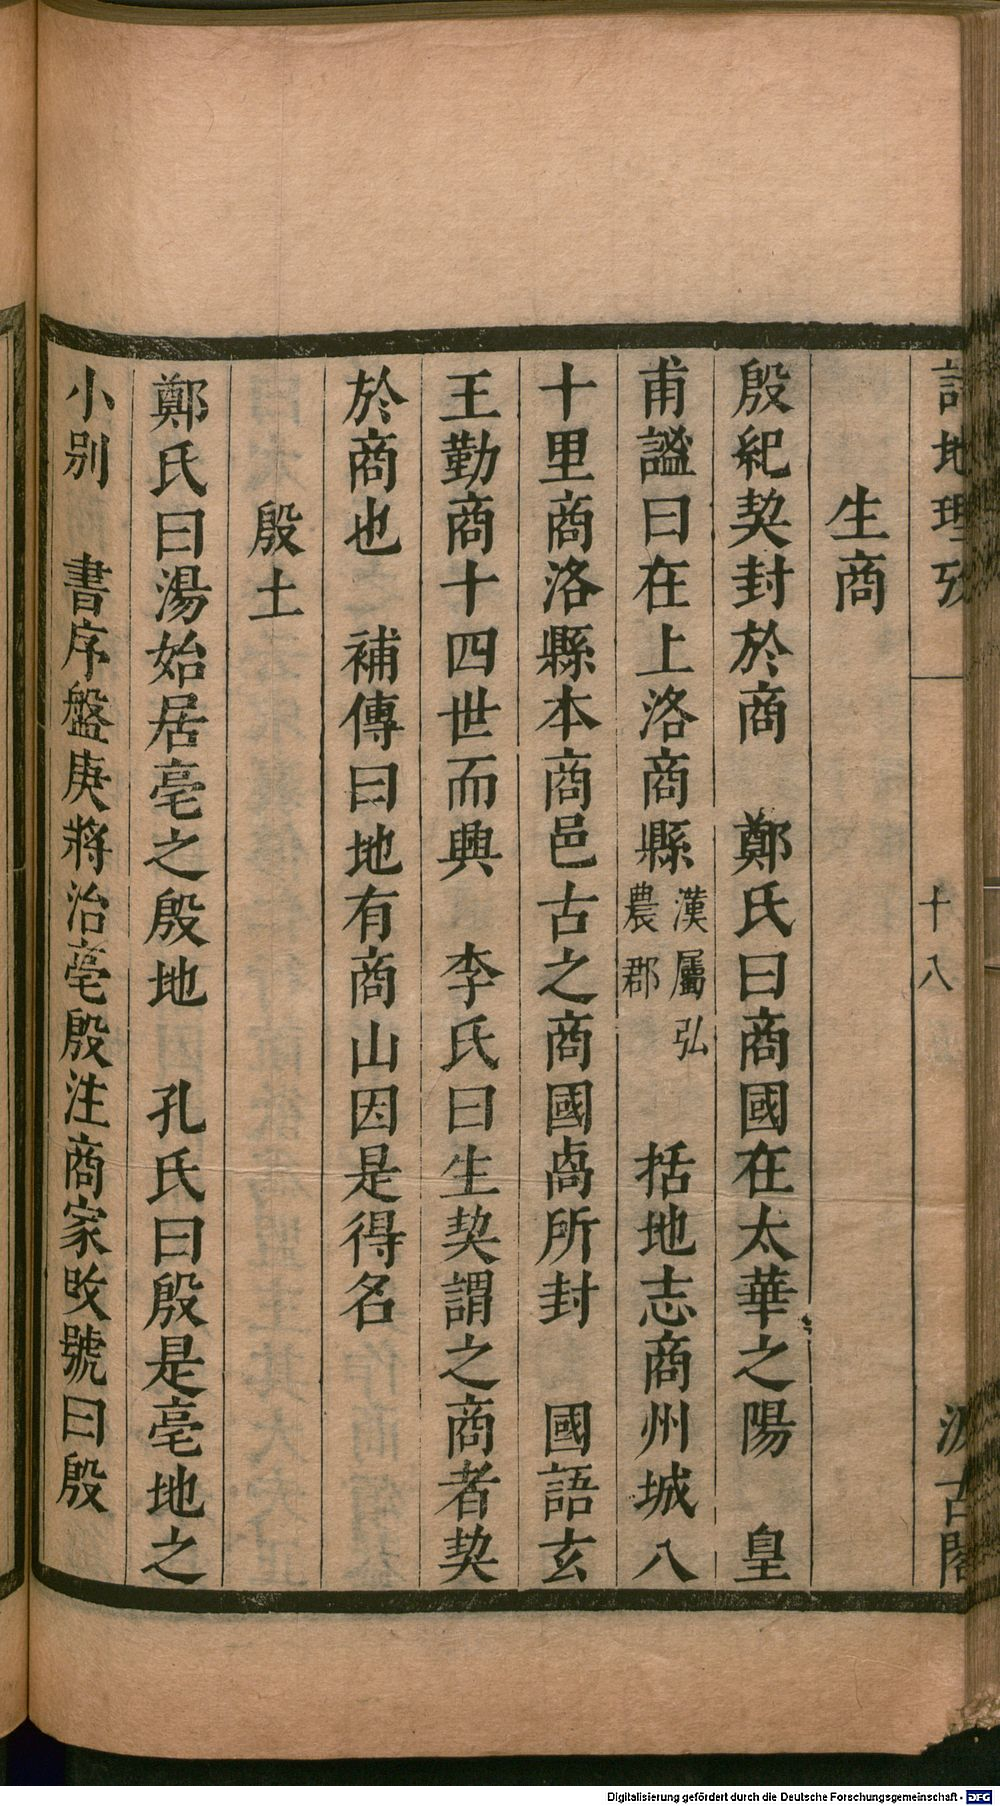 詩地理攷
十八
汲古閣
生商
殷紀契封於商　鄭氏曰商國在太華之陽　皇
甫謐曰在上洛商縣漢屬弘農郡　括地志商州城八
十里商洛縣本商邑古之商國卨所封　國語玄
王勤商十四世而興　李氏曰生契謂之商者契
於商也　補傳曰地有商山因是得名
殷土
鄭氏曰湯始居亳之殷地　孔氏曰殷是亳地之
小别　書序盤庚將治亳殷注商家攺號曰殷
Digitalisierung gefördert durch die Deutsche Forschungsgemeinschaft - DFG